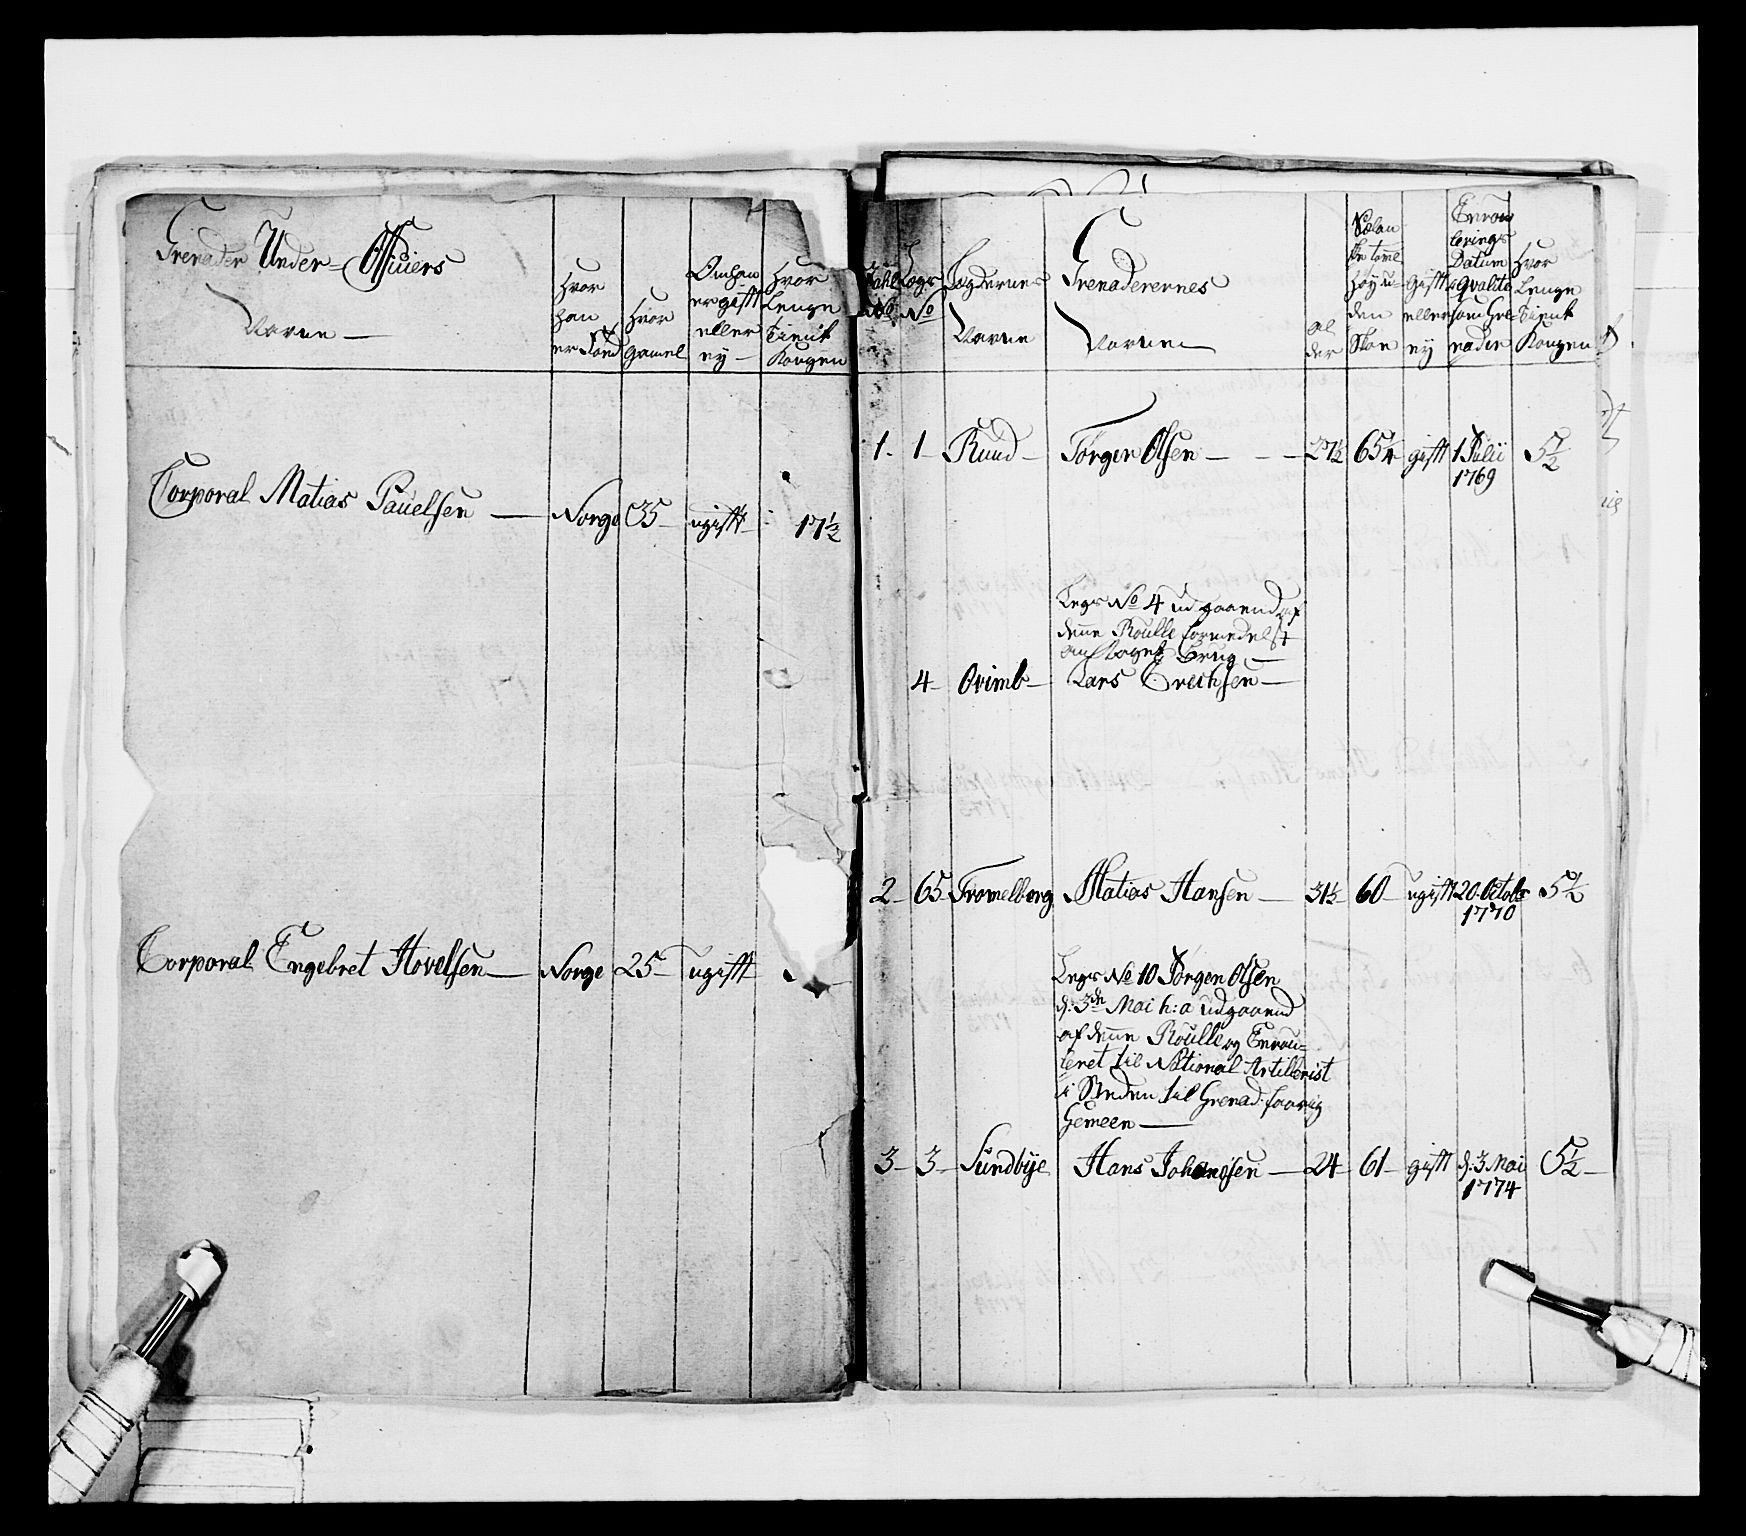 Grenader Under-Officiers
Navne
Hvor
han
er Fød
Hvor
gamel
Om han
er gift
eller
ey
Hvor
Lenge
Tient
Kongen
Corporal Matias Pauelsen — Norge 35 ugift 17½
Corporal Engebret Hovelsen — Norge 25 ugift
No
Lægs
No
Lægdernes
Navne
Grenaderernes
Navne
Al
der
høy u-
den
Skoe
Gift
eller
ey
Enrou
lerings
Datum
Qvalite
som Gre-
nader
Hvor
Lenge
Tient
Kongen
1. 1 Ruud Törger Olsen 27½ 65¼ gift 1 Julii 5½
1769
Legs No 4 udgaaend af
denne Roulle formedelst
4 Lars Erechsen
2 65 Tromelborg Matias Hansen 31½ 60 ugift 20 Octobr 5½
1770
Legs No 10 Jörgen Olsen
d: 3de Mai h: a udgaaend
af denne Roulle og Enrou-
leret til National Artillerist
i Steden til Grenad:
Gemeen
3 3 Sundbÿe Hans Johansen 24 61 gift d: 3 Mai 5½
1774